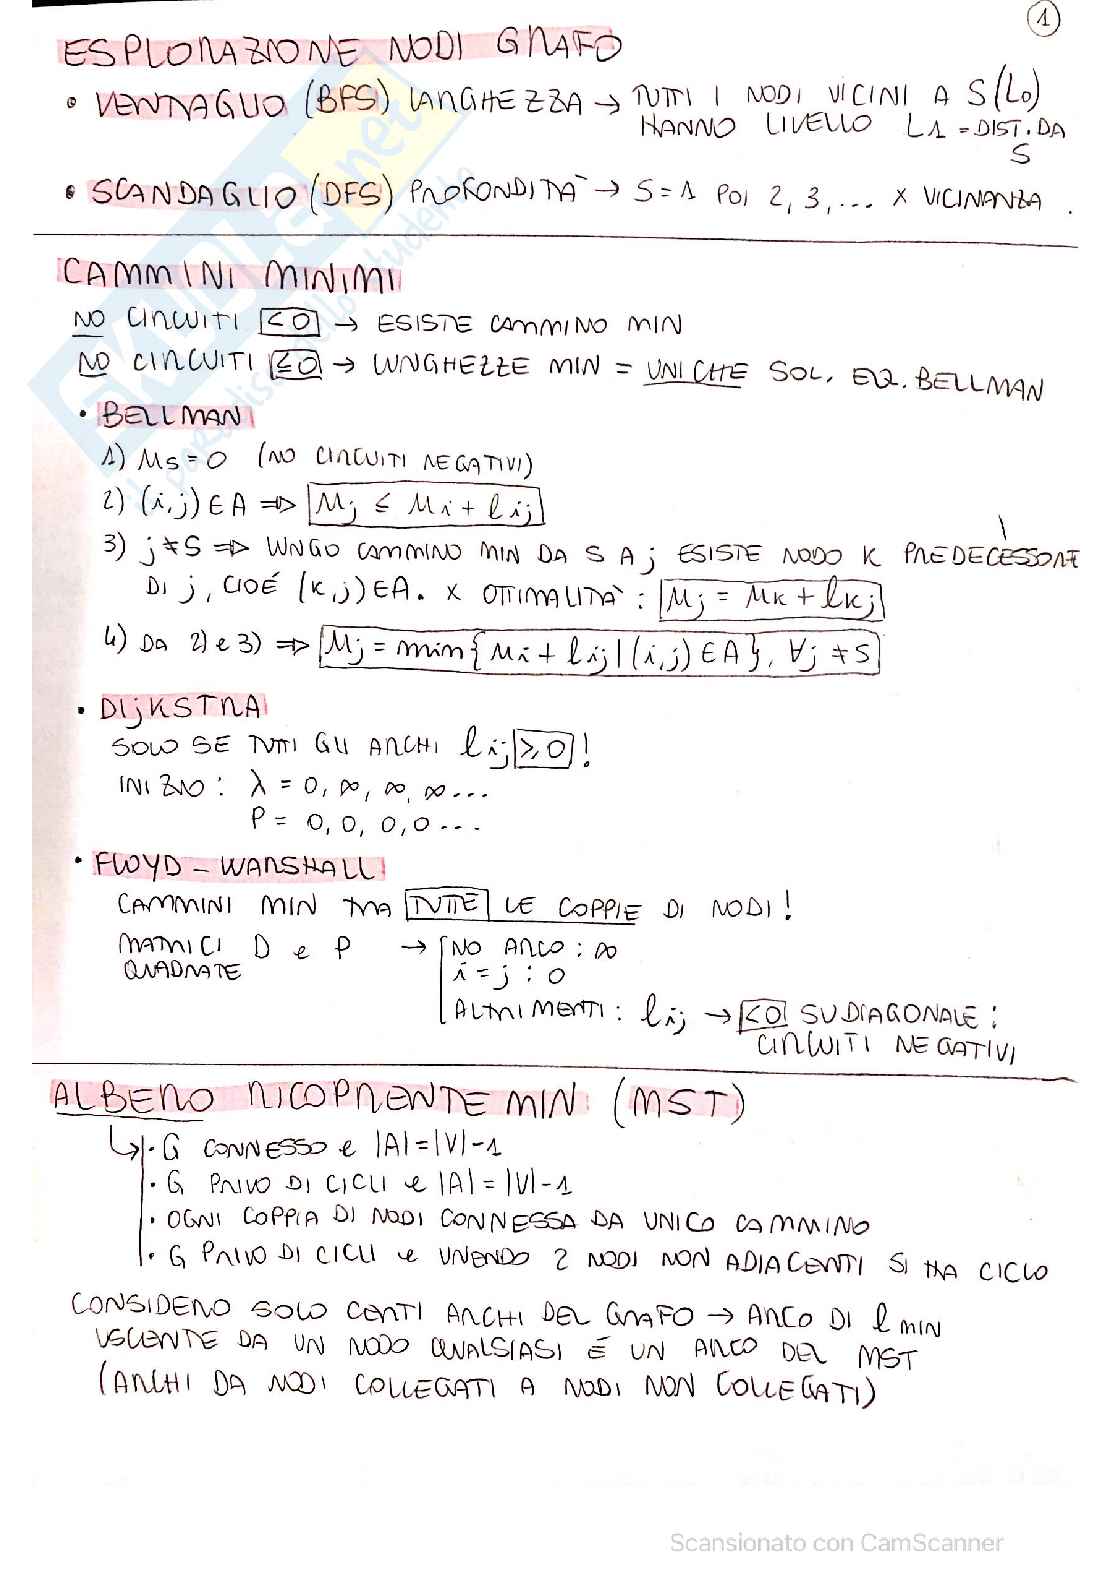 1
ESPLORAZIONE NODI GRAFO
• VENTAGLIO (BFS) LARGHEZZA → TUTTI I NODI VICINI A S(L0)
HANNO LIVELLO L1 = DIST. DA
S
• SCANDAGLIO (DFS) PROFONDITÀ → S=1 POI 2, 3, ... X VICINANZA.
CAMMINI MINIMI
NO CIRCUITI <0 → ESISTE CAMMINO MIN
NO CIRCUITI ≤0 → LUNGHEZZE MIN = UNICHE SOL. EQ. BELLMAN
• BELLMAN
1) Ms = 0 (NO CIRCUITI NEGATIVI)
2) (i,j) ∈ A => Mj ≤ Mi + lij
3) j ≠ S => LUNGO CAMMINO MIN DA S A j ESISTE NODO K PREDECESSORE
DI j, CIOÉ (K,j) ∈ A. X OTTIMALITÀ: Mj = MK + lKj
4) DA 2) e 3) => Mj = min{Mi + lij | (i,j) ∈ A}, ∀j ≠ S
• DIJKSTRA
SOLO SE TUTTI GLI ARCHI lij ≥0!
INIZIO: λ = 0, ∞, ∞, ∞...
P = 0, 0, 0, 0...
• FLOYD - WARSHALL
CAMMINI MIN TRA TUTTE LE COPPIE DI NODI!
MATRICI D e P → NO ARCO: ∞
QUADRATE i = j : 0
ALTRIMENTI: lij → <0 SU DIAGONALE:
CIRCUITI NEGATIVI
ALBERO RICOPRENTE MIN (MST)
↳ • G CONNESSO e |A|=|V|-1
• G PRIVO DI CICLI e |A|=|V|-1
• OGNI COPPIA DI NODI CONNESSA DA UNICO CAMMINO
• G PRIVO DI CICLI e UNENDO 2 NODI NON ADIACENTI SI HA CICLO
CONSIDERO SOLO CERTI ARCHI DEL GRAFO → ARCO DI l MIN
USCENTE DA UN NODO QUALSIASI É UN ARCO DEL MST
(ARCHI DA NODI COLLEGATI A NODI NON COLLEGATI)
Scansionato con CamScanner